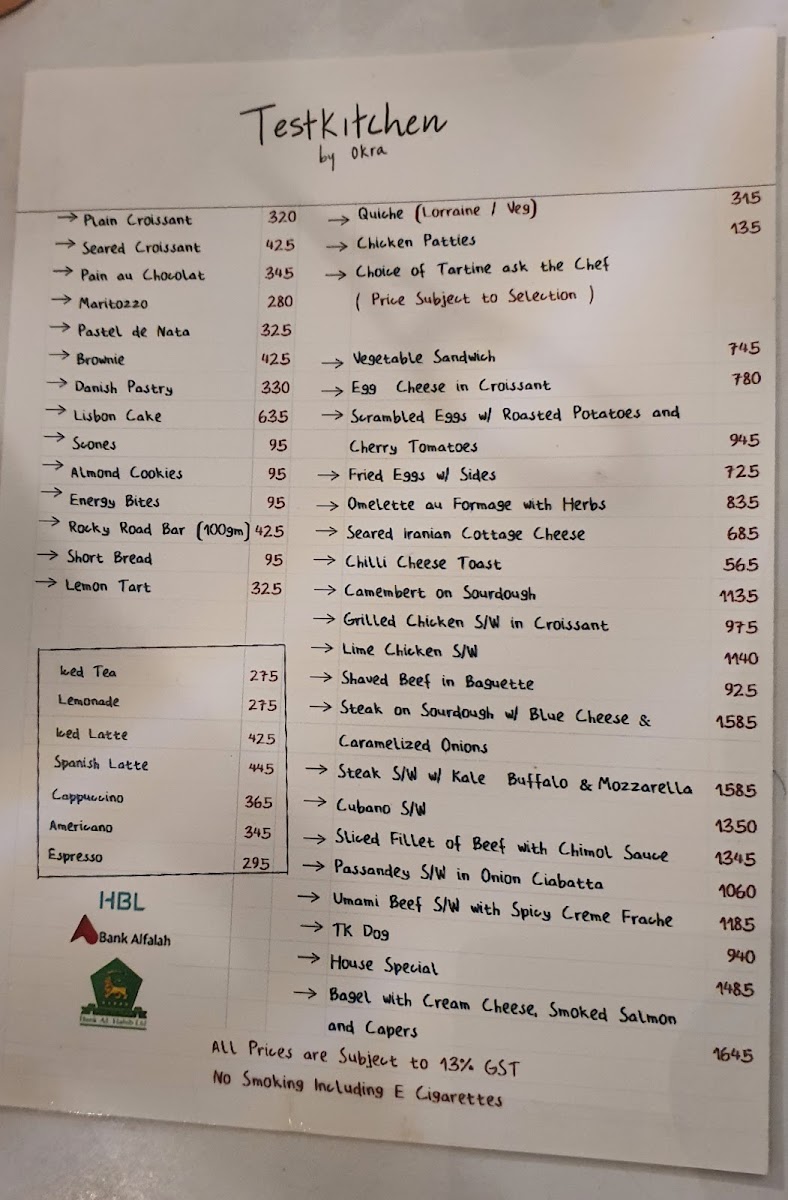 Testkitchen
by Okra
→ Plain Croissant 320
→ Seared Croissant 425
→ Pain au Chocolat 345
→ Maritozzo 280
→ Pastel de Nata 325
→ Brownie 425
→ Danish Pastry 330
→ Lisbon Cake 635
→ Scones 95
→ Almond Cookies 95
→ Energy Bites 95
→ Rocky Road Bar (100gm) 425
→ Short Bread 95
→ Lemon Tart 325
Iced Tea 275
Lemonade 275
Iced Latte 425
Spanish Latte 445
Cappuccino 365
Americano 345
Espresso 295
HBL
Bank Alfalah
Bank AL Habib Ltd
→ Quiche (Lorraine / Veg) 315
→ Chicken Patties 135
→ Choice of Tartine ask the Chef
( Price Subject to Selection )
→ Vegetable Sandwich 745
→ Egg Cheese in Croissant 780
→ Scrambled Eggs w/ Roasted Potatoes and
Cherry Tomatoes 945
→ Fried Eggs w/ Sides 725
→ Omelette au Formage with Herbs 835
→ Seared Iranian Cottage Cheese 685
→ Chilli Cheese Toast 565
→ Camembert on Sourdough 1135
→ Grilled Chicken S/W in Croissant 975
→ Lime Chicken S/W 1140
→ Shaved Beef in Baguette 925
→ Steak on Sourdough w/ Blue Cheese & 1585
Caramelized Onions
→ Steak S/W w/ Kale Buffalo & Mozzarella 1585
→ Cubano S/W 1350
→ Sliced Fillet of Beef with Chimol Sauce 1345
→ Passandey S/W in Onion Ciabatta 1060
→ Umami Beef S/W with Spicy Creme Frache 1185
→ TK Dog 940
→ House Special 1485
→ Bagel with Cream Cheese, Smoked Salmon
and Capers 1645
ALL Prices are Subject to 13% GST
No Smoking Including E Cigarettes